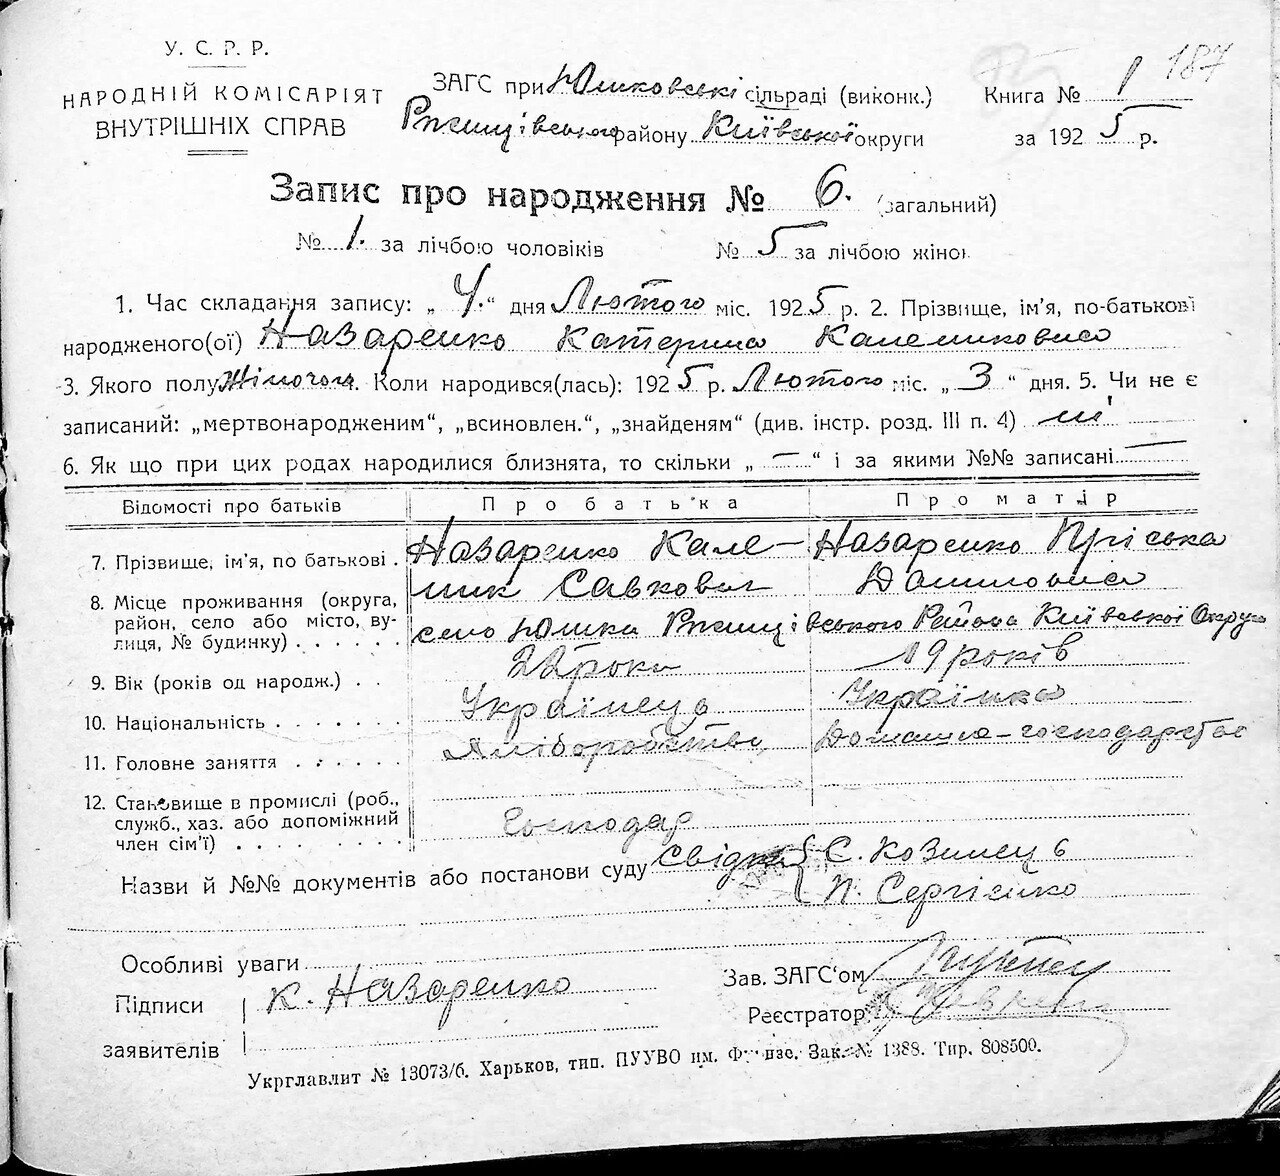 187
У. С. Р. Р.
НАРОДНІЙ КОМІСАРІЯТ
ВНУТРІШНІХ СПРАВ
ЗАГС при Юшковські сільраді (виконк.)
Ржищівського району Київської округи
Книга № 1
за 1925 р.
Запис про народження № 6. (загальний)
№ 1. за лічбою чоловіків № 5 за лічбою жінок
1. Час складання запису: „ 4. “ дня Лютого міс. 1925 р. 2. Прізвище, ім’я, по-батькові
народженого(ої) Назаренко Катерина Калениковна
3. Якого полу Жіночого. Коли народився(лась): 1925 р. Лютого міс. „ 3 “ дня. 5. Чи не є
записаний: „мертвонародженим“, „всиновлен.“, „знайденям“ (див. інстр. розд. III п. 4) ні
6. Як що при цих родах народилися близнята, то скільки „ — “ і за якими №№ записані —
Відомості про батьків Про батька Про матір
7. Прізвище, ім’я, по батькові . Назаренко Кале- Назаренко Пріська
ник Савкович Даниловна
8. Місце проживання (округа,
район, село або місто, ву-
лиця, № будинку) . . . . . . село Юшки Ржищівського Района Київської Округи
9. Вік (років од народж.) . . 22 роки 19 років
10. Національність . . . . . . . Українець Українка
11. Головне заняття . . . . . . Хліборобство Домашнє-господарство
12. Становище в промислі (роб.,
служб., хаз. або допоміжний
член сім’ї) . . . . . . . . . Господар
Назви й №№ документів або постанови суду свідки { С. Козинець
П. Сергієнко
Особливі уваги
Підписи К. Назаренко
заявителів
Зав. ЗАГС‘ом
Реєстратор
Укрглавліт № 13073/б. Харьков, тип. ПУУВО им. Фрунзе. Зак. № 1388. Тир. 808500.